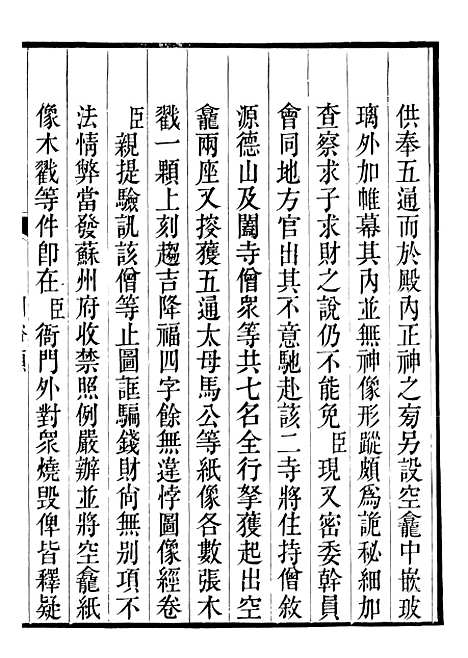 供奉五通而於殿內正神之旁另設空龕中嵌玻
璃外加帷幕其內並無神像形蹤頗爲詭秘細加
查察求子求財之說仍不能免臣現又密委幹員
會同地方官出其不意馳赴該二寺將住持僧敘
源德山及闔寺僧衆等共七名全行拏獲起出空
龕兩座又搜獲五通太母馬公等紙像各數張木
戳一顆上刻趨吉降福四字餘無違悖圖像經卷
臣親提驗訊該僧等止圖誆騙錢財尙無別項不
法情弊當發蘇州府收禁照例嚴辦並將空龕紙
像木戳等件卽在臣衙門外對衆燒毀俾皆釋疑